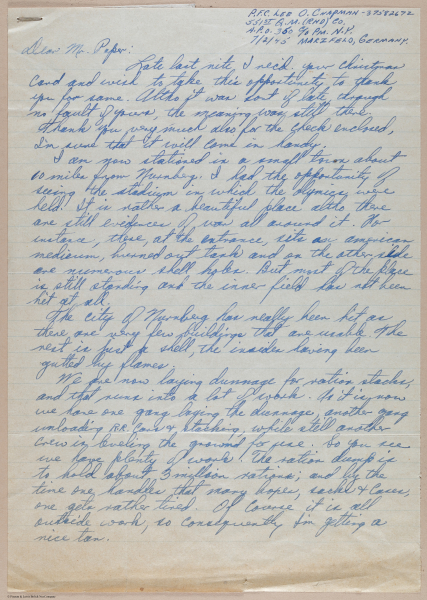 P.F.C. LEO O. CHAPMAN - 37582692
551ST Q.M. (RHD) CO.
A.P.O. 360 % P.M. N.Y.
7/2/45 MARZFELD, GERMANY.
Dear Mr. Peper:
Late last nite, I rec'd. your Christmas
Card and wish to take this opportunity to thank
you for same. Altho it was sort of late through
no fault of yours, the meaning was still there.
Thank you very much also for the check enclosed,
I'm sure that it will come in handy.
I am now stationed in a small town about
10 miles from Nurnberg. I had the opportunity of
seeing the stadium in which the olympics were
held. It is rather a beautiful place altho there
are still evidences of war all around it. For
instance, there, at the entrance, sits an american
medium, burned out tank and on the other side
are numerous shell holes. But most of the place
is still standing and the inner field has not been
hit at all.
The city of Nurnberg has really been hit as
there are very few buildings that are usable. The
rest is just a shell, the insides having been
gutted by flames.
We are now laying dunnage for ration stacks,
and that runs into a lot of work. As it is now
we have one gang laying the dunnage, another gang
unloading R.R. Cars & stacking, while still another
crew is leveling the ground for use. So you see
we have plenty of work. The ration dump is
to hold about 3 million rations; and by the
time one handles that many boxes, sacks & cases,
one gets rather tired. Of course it is all
outside work, so consequently I'm getting a
nice tan.